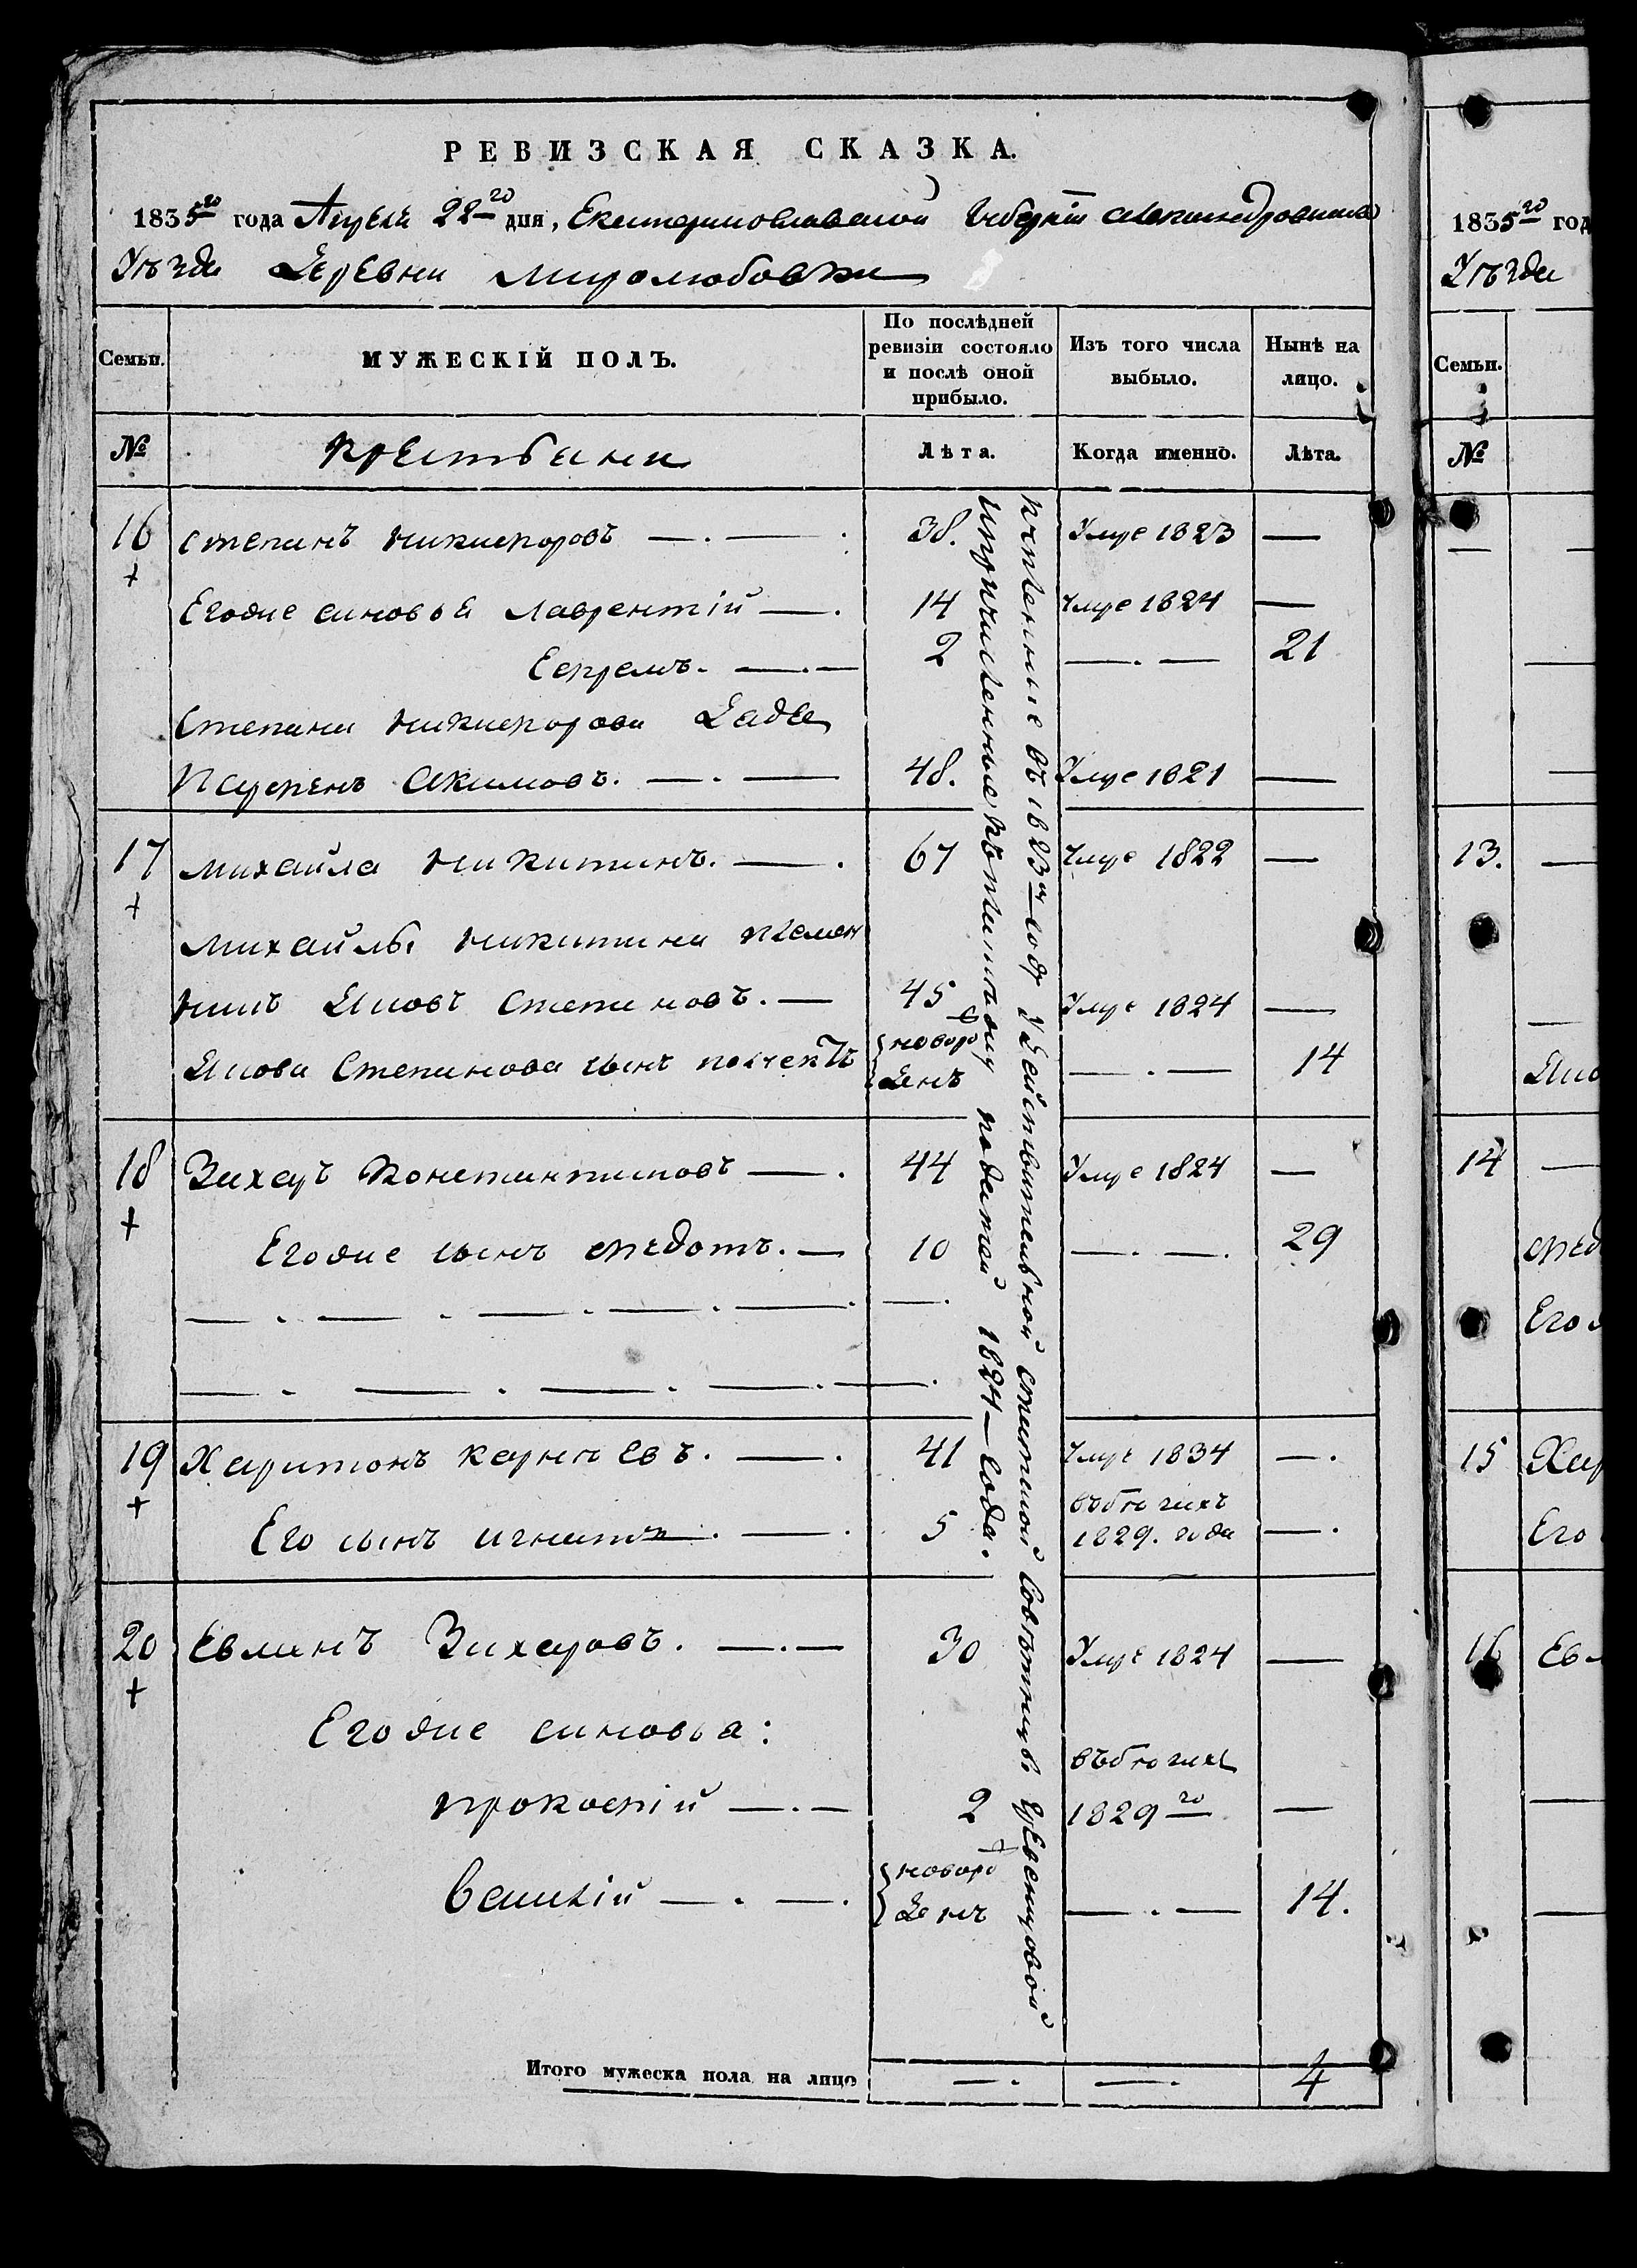 РЕВИЗСКАЯ СКАЗКА.
1835го года Апреля 22го дня, Екатеринославской Губерніи Александровскаго
Уѣзда Деревни Миролюбовки
Семьи.
МУЖЕСКІЙ ПОЛЪ.
По послѣдней ревизіи состояло и послѣ оной прибыло.
Изъ того числа выбыло.
Нынѣ на лицо.
№
Крестьяни
Лѣта.
Когда именно.
Лѣта.
16 Степанъ Никифоровъ 38. Умре 1823 —
Егоже синовья Лаврентій 14 Умре 1824 —
Ефремъ. 2 — 21
Степана Никифорова Дядя
Парфенъ Акимовъ. 48. Умре 1821 —
17 Михайла Никитинъ. 67 Умре 1822 —
Михайлы Никитина племян
никъ Яковъ Степановъ. 45 Умре 1824 —
Якова Степанова сынъ новоро
денъ — 14
18 Захаръ Константиновъ 44 Умре 1824 —
Егоже сынъ Федотъ. 10 — 29
19 Харитонъ Карнеевъ. 41 Умре 1834 —
Его сынъ Игнатъ. 5 въбегахъ 1829. года —
20 Захаровъ. 30 Умре 1824 —
Егоже синовья:
Прокофій 2 въбегахъ 1829го —
Василій новоро
денъ — 14.
въ 1823м году У Действительной Статской Совѣтницы
по 1824 года.
Итого мужеска пола на лицо — — 4
1835го год
Уѣзда
Семьи.
№
13.
14
15 Хар
Его
16 Ев